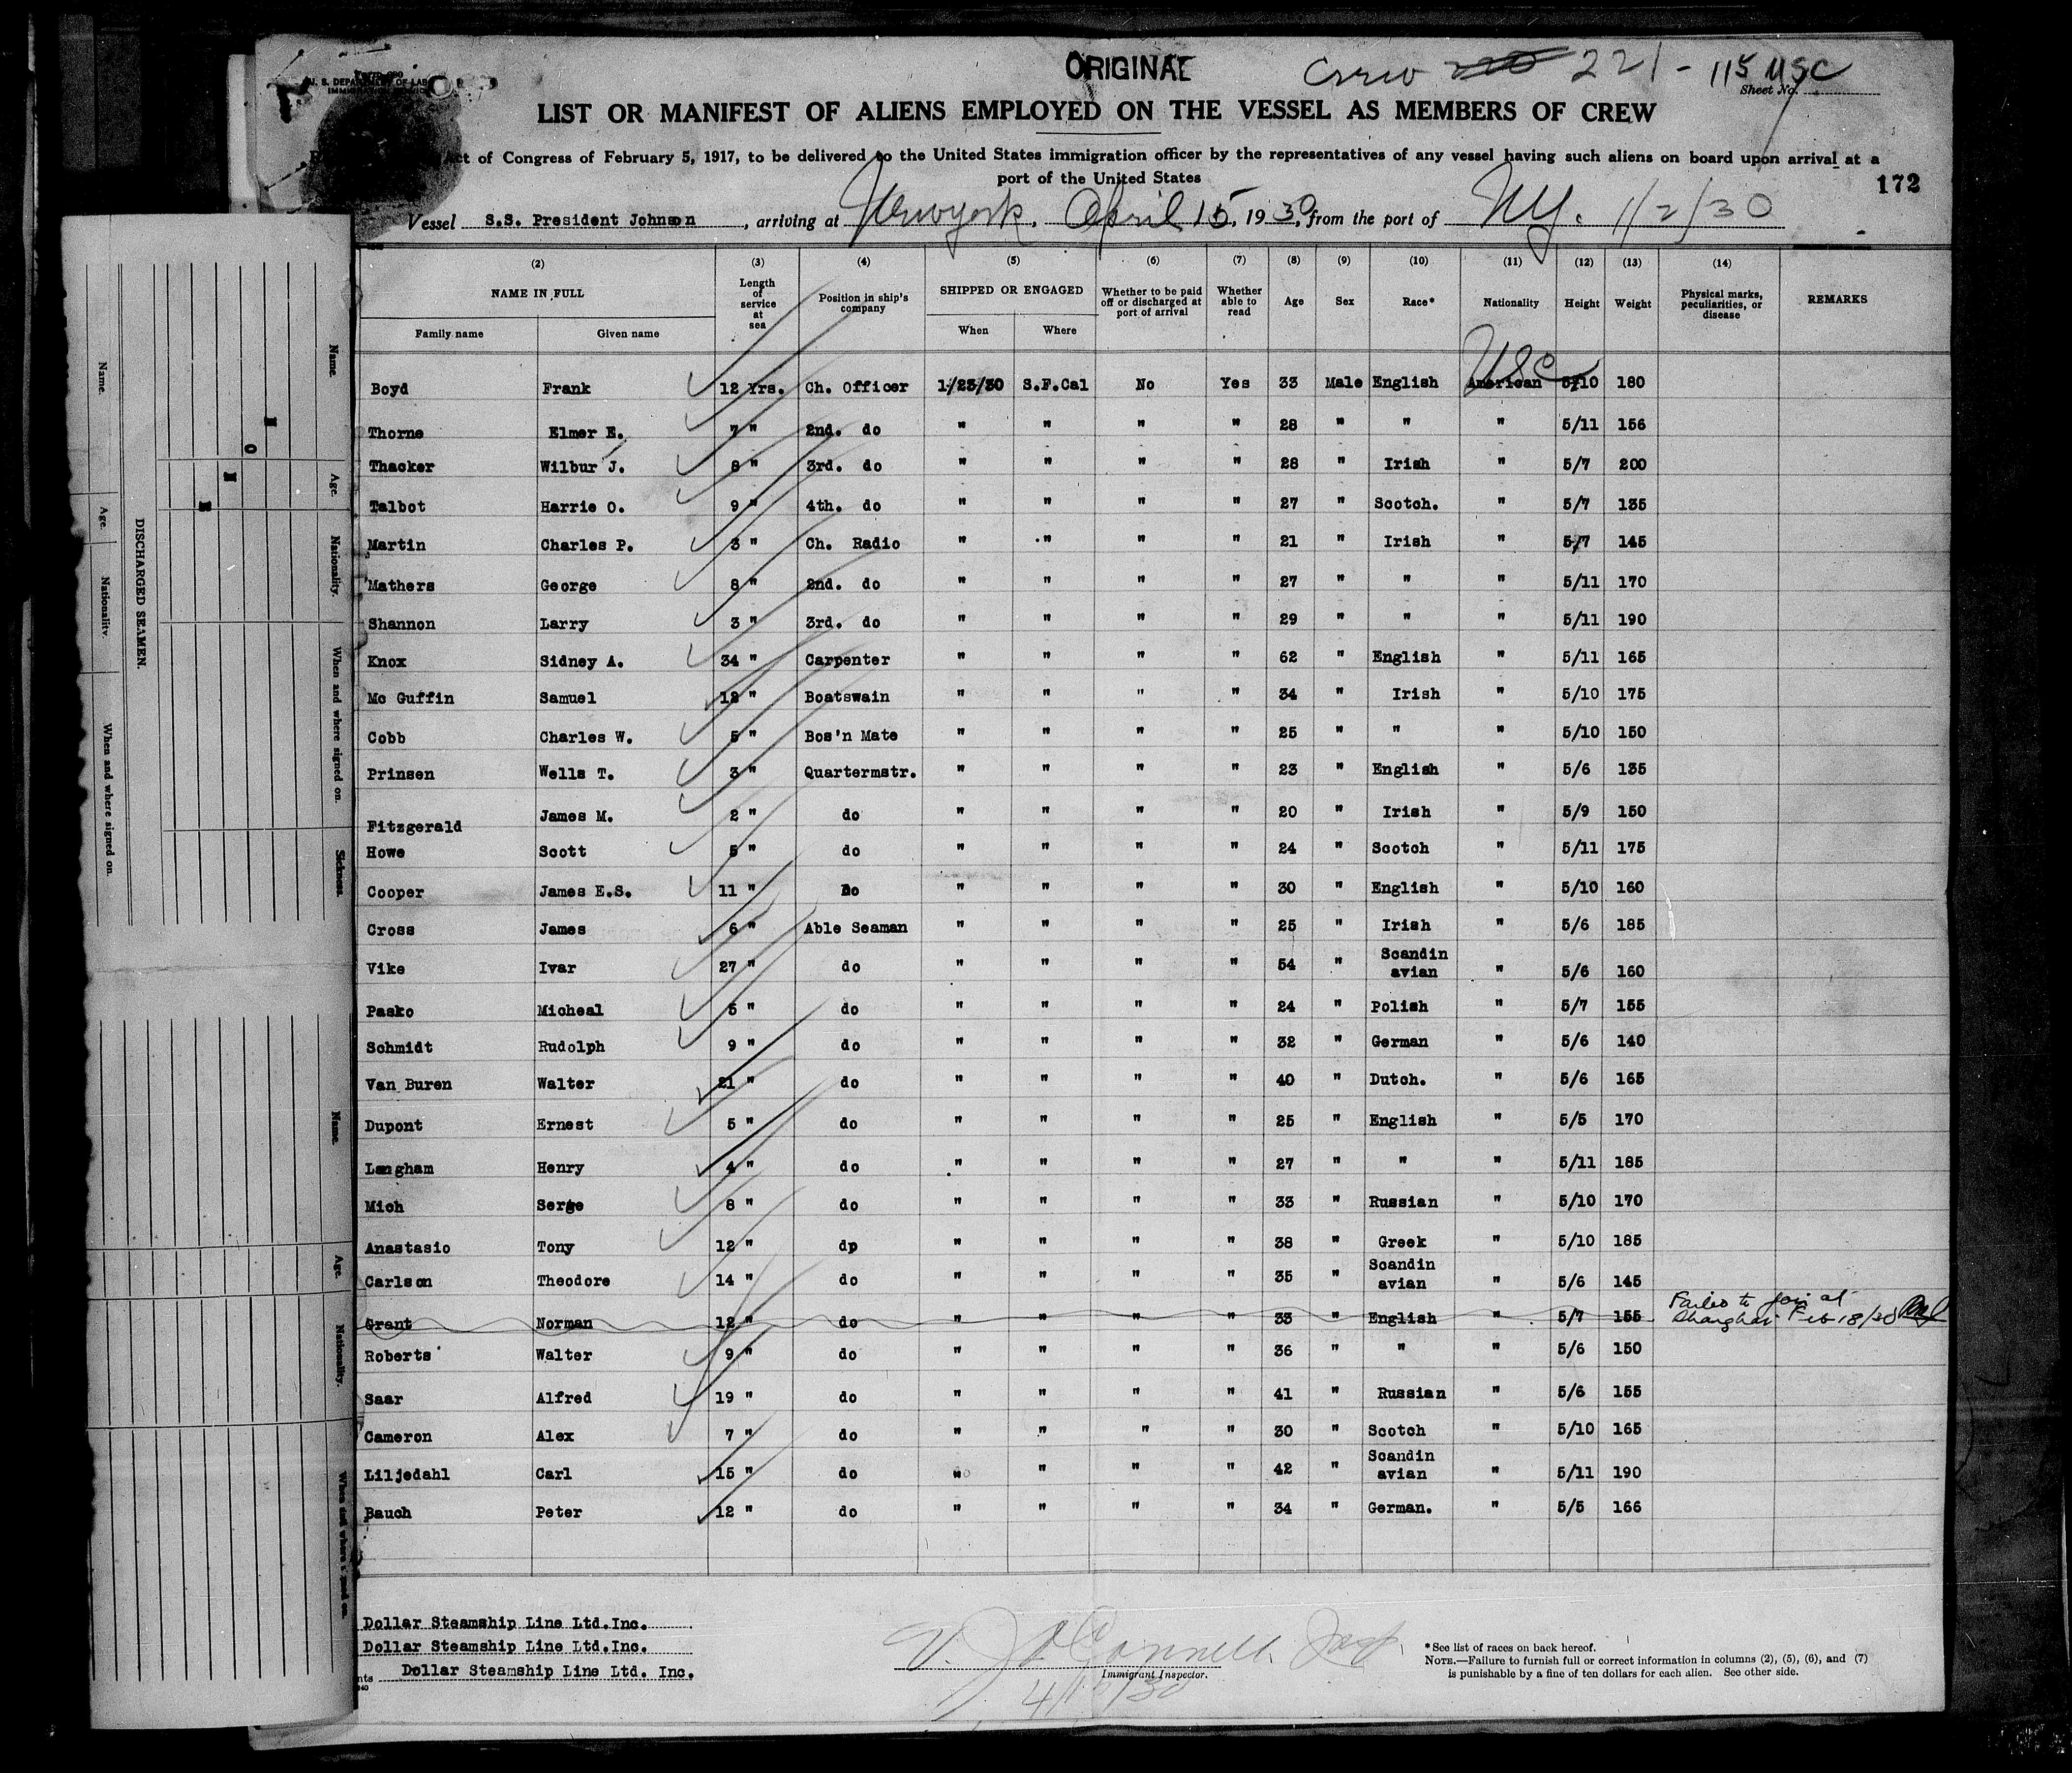 ORIGINAL
Crew 220 221 - 115 USC
U. S. DEPARTMENT OF LABOR
Sheet No.
LIST OR MANIFEST OF ALIENS EMPLOYED ON THE VESSEL AS MEMBERS OF CREW
Act of Congress of February 5, 1917, to be delivered to the United States immigration officer by the representatives of any vessel having such aliens on board upon arrival at a
port of the United States
172
Vessel S.S. President Johnson, arriving at Newyork, April 15, 1930, from the port of NY. 1/2/30
(2) (3) (4) (5) (6) (7) (8) (9) (10) (11) (12) (13) (14)
NAME IN FULL Length of service at sea Position in ship's company SHIPPED OR ENGAGED Whether to be paid off or discharged at port of arrival Whether able to read Age Sex Race* Nationality Height Weight Physical marks, peculiarities, or disease REMARKS
Family name Given name When Where
USC
Boyd Frank 12 Yrs. Ch. Officer 1/23/30 S.F.Cal No Yes 33 Male English American 5/10 180
Thorne Elmer E. 7 " 2nd. do " " " " 28 " " " 5/11 156
Thacker Wilbur J. 8 " 3rd. do " " " " 28 " Irish " 5/7 200
Talbot Harrie O. 9 " 4th. do " " " " 27 " Scotch. " 5/7 135
Martin Charles P. 3 " Ch. Radio " " " " 21 " Irish " 5/7 145
Mathers George 8 " 2nd. do " " " " 27 " " " 5/11 170
Shannon Larry 3 " 3rd. do " " " " 29 " " " 5/11 190
Knox Sidney A. 34 " Carpenter " " " " 62 " English " 5/11 165
Mc Guffin Samuel 12 " Boatswain " " " " 34 " Irish " 5/10 175
Cobb Charles W. 5 " Bos'n Mate " " " " 25 " " " 5/10 150
Prinsen Wells T. 3 " Quartermstr. " " " " 23 " English " 5/6 135
Fitzgerald James M. 2 " do " " " " 20 " Irish " 5/9 150
Howe Scott 5 " do " " " " 24 " Scotch " 5/11 175
Cooper James E.S. 11 " Do " " " " 30 " English " 5/10 160
Cross James 6 " Able Seaman " " " " 25 " Irish " 5/6 185
Vike Ivar 27 " do " " " " 54 " Scandin avian " 5/6 160
Pasko Micheal 5 " do " " " " 24 " Polish " 5/7 155
Schmidt Rudolph 9 " do " " " " 32 " German " 5/6 140
Van Buren Walter 21 " do " " " " 40 " Dutch. " 5/6 165
Dupont Ernest 5 " do " " " " 25 " English " 5/5 170
Langham Henry 4 " do " " " " 27 " " " 5/11 185
Mich Serge 8 " do " " " " 33 " Russian " 5/10 170
Anastasio Tony 12 " dp " " " " 38 " Greek " 5/10 185
Carlson Theodore 14 " do " " " " 35 " Scandin avian " 5/6 145
Grant Norman 12 " do " " " " 33 " English " 5/7 155 Failed to join at Shanghai Feb 18/30
Roberts Walter 9 " do " " " " 36 " " " 5/6 150
Saar Alfred 19 " do " " " " 41 " Russian " 5/6 155
Cameron Alex 7 " do " " " " 30 " Scotch " 5/10 165
Liljedahl Carl 15 " do " " " " 42 " Scandin avian " 5/11 190
Bauch Peter 12 " do " " " " 34 " German. " 5/5 166
Dollar Steamship Line Ltd.Inc.
Dollar Steamship Line Ltd.Inc.
nts Dollar Steamship Line Ltd. Inc.
Immigrant Inspector.
4/15/30
*See list of races on back hereof.
NOTE.—Failure to furnish full or correct information in columns (2), (5), (6), and (7)
is punishable by a fine of ten dollars for each alien. See other side.
DISCHARGED SEAMEN.
Name. Age. Nationality. When and where signed on.
Name. Age. Nationality. When and where signed on. Sickness.
Name. Age. Nationality.